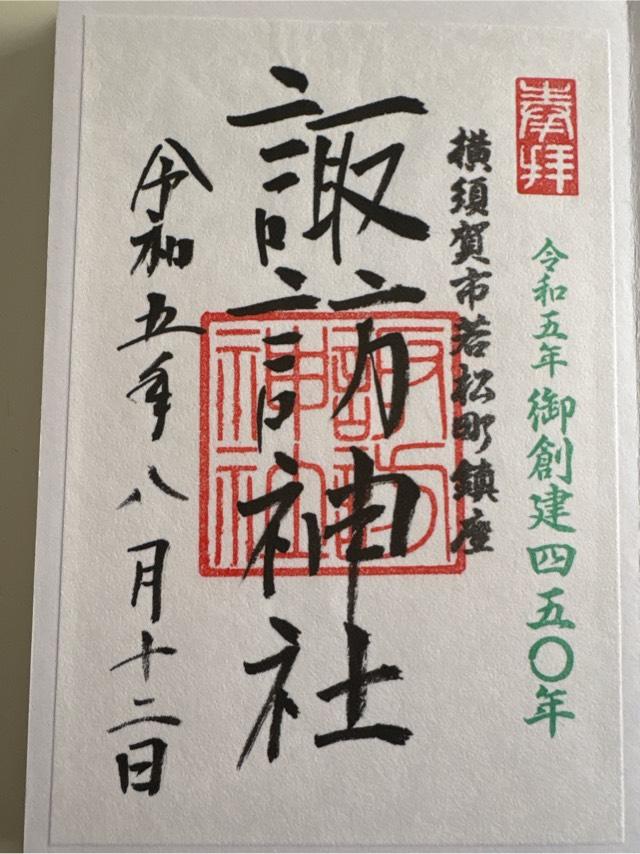 奉拝
令和五年御創建四五〇年
横須賀市若松町鎮座
諏訪神社
諏訪神社
令和五年八月十二日